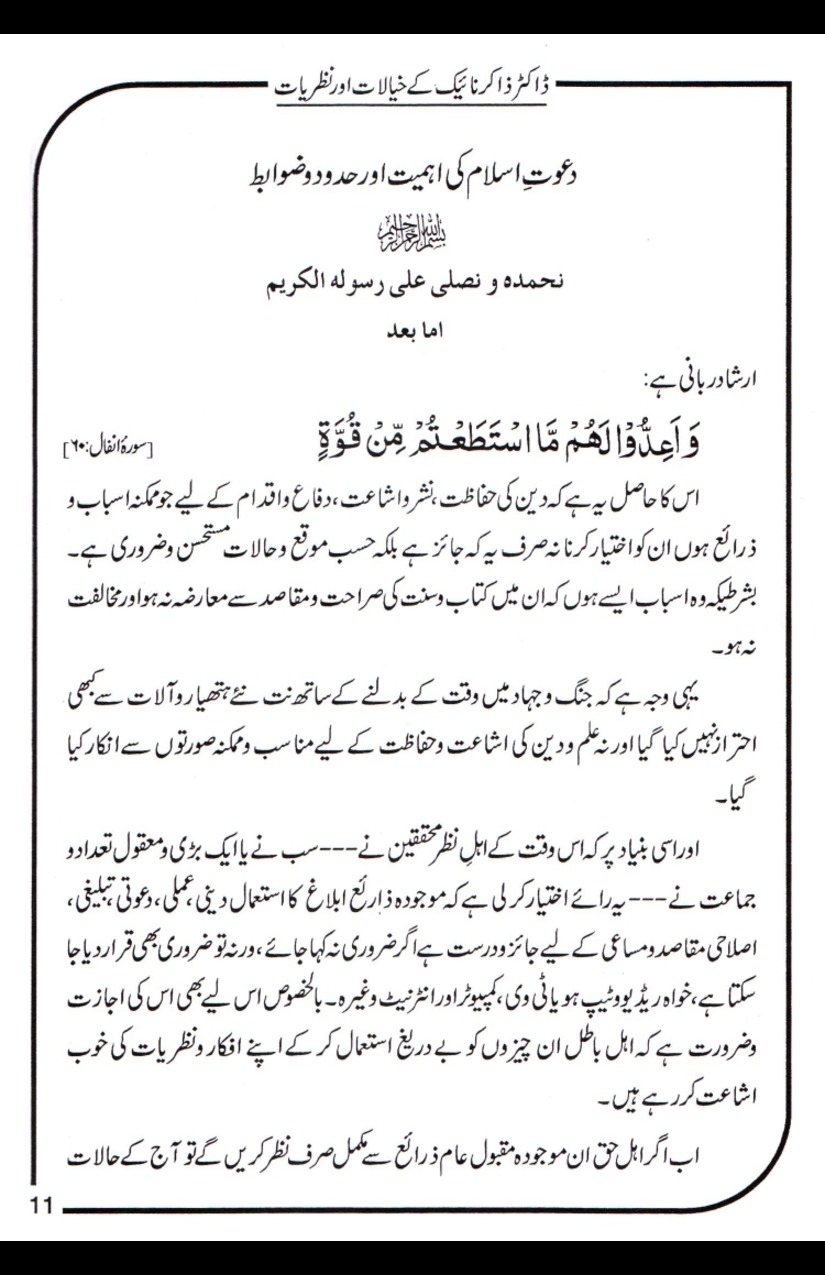 ڈاکٹر ذاکر نائیک کے خیالات اور نظریات
دعوتِ اسلام کی اہمیت اور حدود وضوابط
بسم الله الرحمن الرحيم
نحمده و نصلی علی رسوله الكريم
اما بعد
ارشاد ربانی ہے:
وَاَعِدُّوْا لَهُمْ مَّا اسْتَطَعْتُمْ مِّنْ قُوَّةٍ [سورۂ انفال:۶۰]
اس کا حاصل یہ ہے کہ دین کی حفاظت، نشر واشاعت، دفاع واقدام کے لیے جو ممکنہ اسباب و
ذرائع ہوں ان کو اختیار کرنا نہ صرف یہ کہ جائز ہے بلکہ حسب موقع وحالات مستحسن وضروری ہے۔
بشرطیکہ وہ اسباب ایسے ہوں کہ ان میں کتاب وسنت کی صراحت ومقاصد سے معارضہ نہ ہو اور مخالفت
نہ ہو۔
یہی وجہ ہے کہ جنگ وجہاد میں وقت کے بدلنے کے ساتھ نت نئے ہتھیار وآلات سے کبھی
احتراز نہیں کیا گیا اور نہ علم ودین کی اشاعت وحفاظت کے لیے مناسب وممکنہ صورتوں سے انکار کیا
گیا۔
اور اسی بنیاد پر کہ اس وقت کے اہلِ نظر محققین نے---سب نے یا ایک بڑی ومعقول تعداد و
جماعت نے---یہ رائے اختیار کر لی ہے کہ موجودہ ذارئع ابلاغ کا استعمال دینی، عملی، دعوتی، تبلیغی،
اصلاحی مقاصد ومساعی کے لیے جائز ودرست ہے اگر ضروری نہ کہا جائے، ورنہ تو ضروری بھی قرار دیا جا
سکتا ہے، خواہ ریڈیو وٹیپ ہو یا ٹی وی، کمپیوٹر اور انٹرنیٹ وغیرہ۔ بالخصوص اس لیے بھی اس کی اجازت
وضرورت ہے کہ اہل باطل ان چیزوں کو بے دریغ استعمال کر کے اپنے افکار ونظریات کی خوب
اشاعت کر رہے ہیں۔
اب اگر اہل حق ان موجودہ مقبول عام ذرائع سے مکمل صرف نظر کریں گے تو آج کے حالات
11